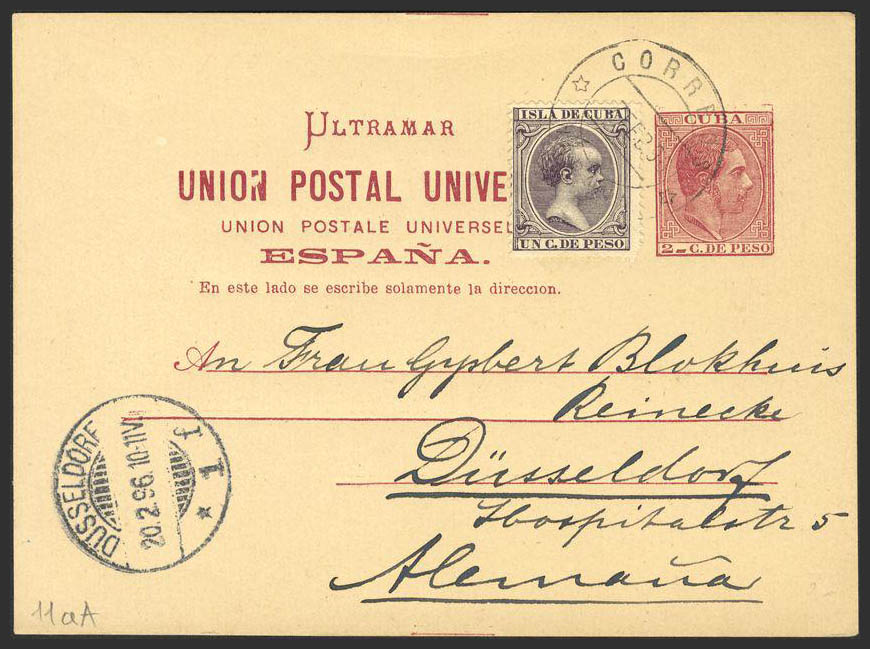 CORRE
ULTRAMAR
ISLA DE CUBA
CUBA
UNION POSTAL UNIVE
UNION POSTALE UNIVERSEL
UN C. DE PESO
2 C. DE PESO
ESPAÑA.
En este lado se escribe solamente la direccion.
An Frau Gypbert Blokhuis
Reinecke
Düsseldorf
Hospitalstr 5
Alemaña
DÜSSELDORF
20.2.96.10-11V.
* 1 f
11aA